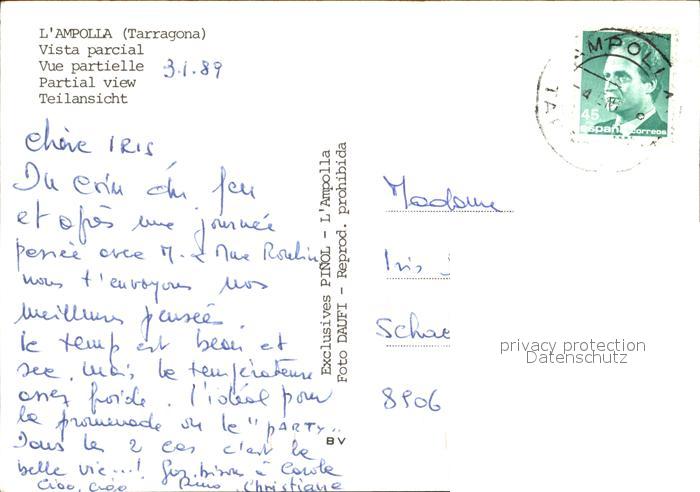 L'AMPOLLA (Tarragona)
Vista parcial
Vue partielle 3.1.89
Partial view
Teilansicht
Chère IRIS
Du coin du feu
et après une journée
passée avec M. & Mme
nous t'envoyons nos
meilleures pensées.
Le temps est beau et
sec, mais la température
assez froide. l'idéal pour
la promenade ou le "PARTY"
Dans les 2 cas c'est la
belle vie...! Gros bisous à Carole
Ciao, ciao Christiane
Exclusives PIÑOL - L'Ampolla
Foto DAUFI - Reprod. prohibida
BV
AMPOLLA
45
España correos
Madame
Iris
8906
privacy protection
Datenschutz